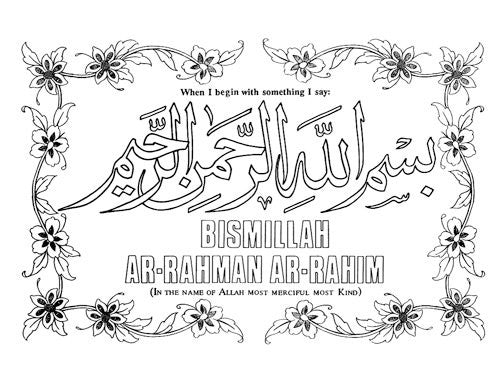 When I begin with something I say:
بِسْمِ اللَّهِ الرَّحْمَنِ الرَّحِيمِ
BISMILLAH
AR-RAHMAN AR-RAHIM
(IN THE NAME OF ALLAH MOST MERCIFUL MOST KIND)